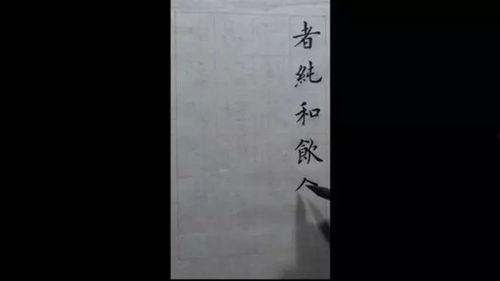 者純和飲